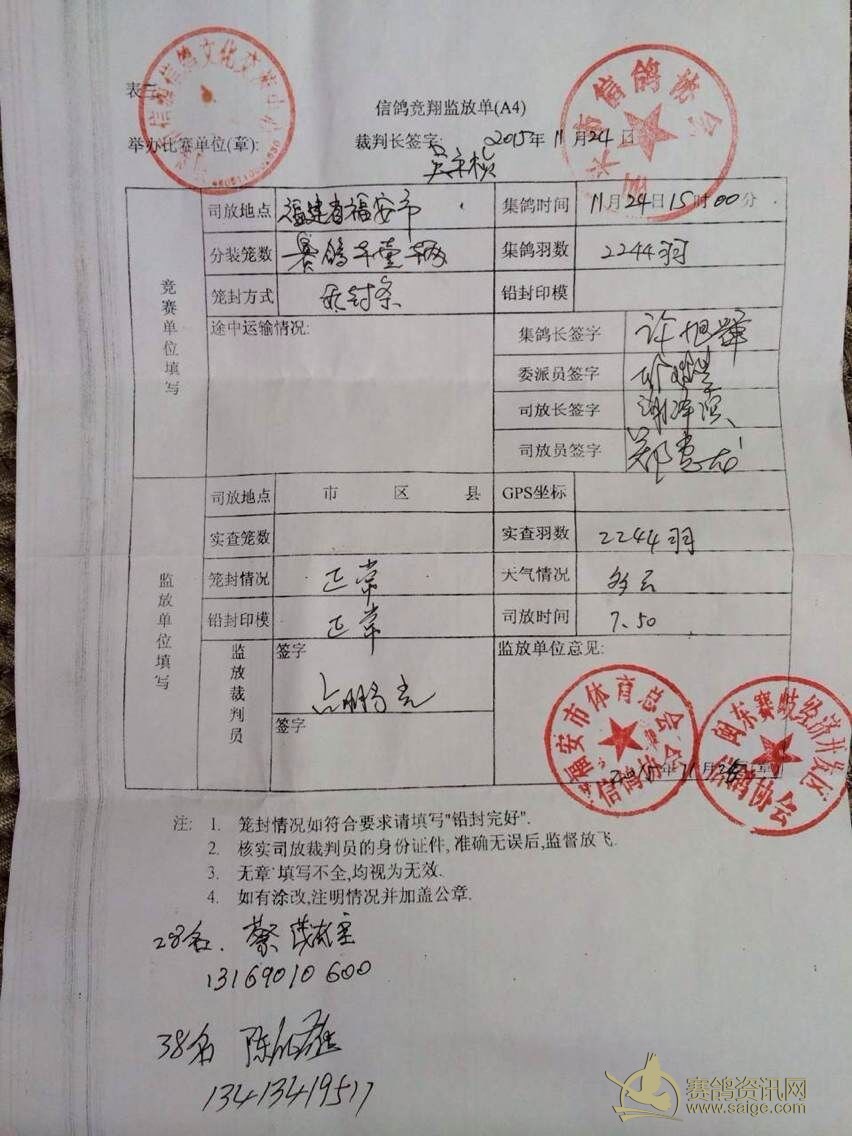 表三
信鸽竞翔监放单(A4)
举办比赛单位(章):
裁判长签字:
2015年11月24日
信鸽协会
竞赛单位填写
司放地点 福建省福安市
集鸽时间 11月24日15时00分
分装笼数 赛鸽车壹辆
集鸽羽数 2244羽
笼封方式
铅封印模
途中运输情况:
集鸽长签字 许旭辉
委派员签字
司放长签字
司放员签字
监放单位填写
司放地点 市 区 县
GPS坐标
实查笼数
实查羽数 2244羽
笼封情况 正常
天气情况 多云
铅封印模 正常
司放时间 7.50
监放裁判员
签字
签字
监放单位意见:
福安市体育总会
信鸽协会
闽东赛岐经济开发区
信鸽协会
注: 1. 笼封情况如符合要求请填写"铅封完好".
2. 核实司放裁判员的身份证件, 准确无误后,监督放飞.
3. 无章`填写不全,均视为无效.
4. 如有涂改,注明情况并加盖公章.
28名. 蔡
13169010600
38名 陈
13413419517
赛鸽资讯网
www.saige.com